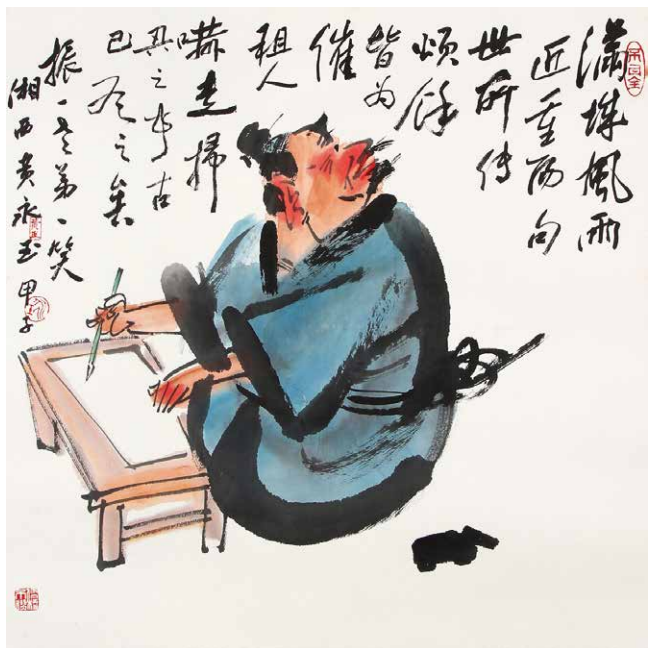 滿城風雨
近重阳句
世所传
颂餘
皆为
催
租人
嚇走掃
兴之事古
已有之矣
振一老弟一笑
湘西黄永玉 甲子